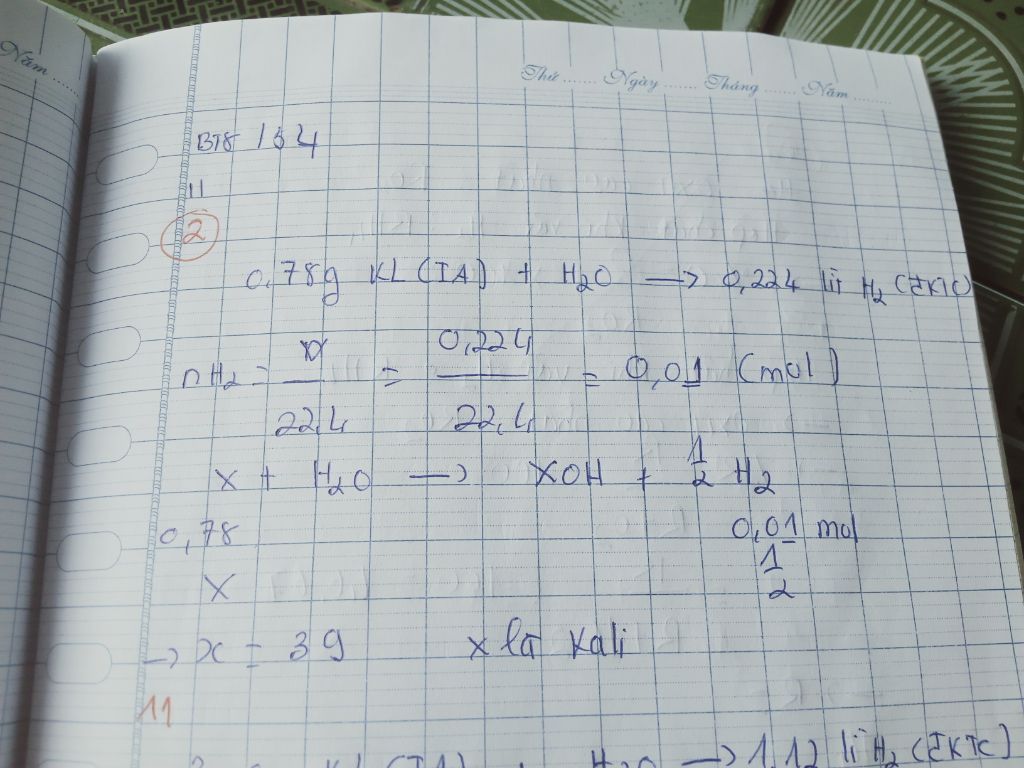 Năm
Thứ ........ Ngày ........ Tháng ........ Năm ........
BT8 154
11
2
0,78g KL (IA) + H2O → 0,224 lít H2 (ĐKTC)
nH2 = V/22,4 = 0,224/22,4 = 0,01 (mol)
X + H2O → XOH + 1/2 H2
0,78 0,01 mol
X 1/2
→ x = 39 X là Kali
11
KL (IA) + H2O → 1,12 lít H2 (ĐKTC)